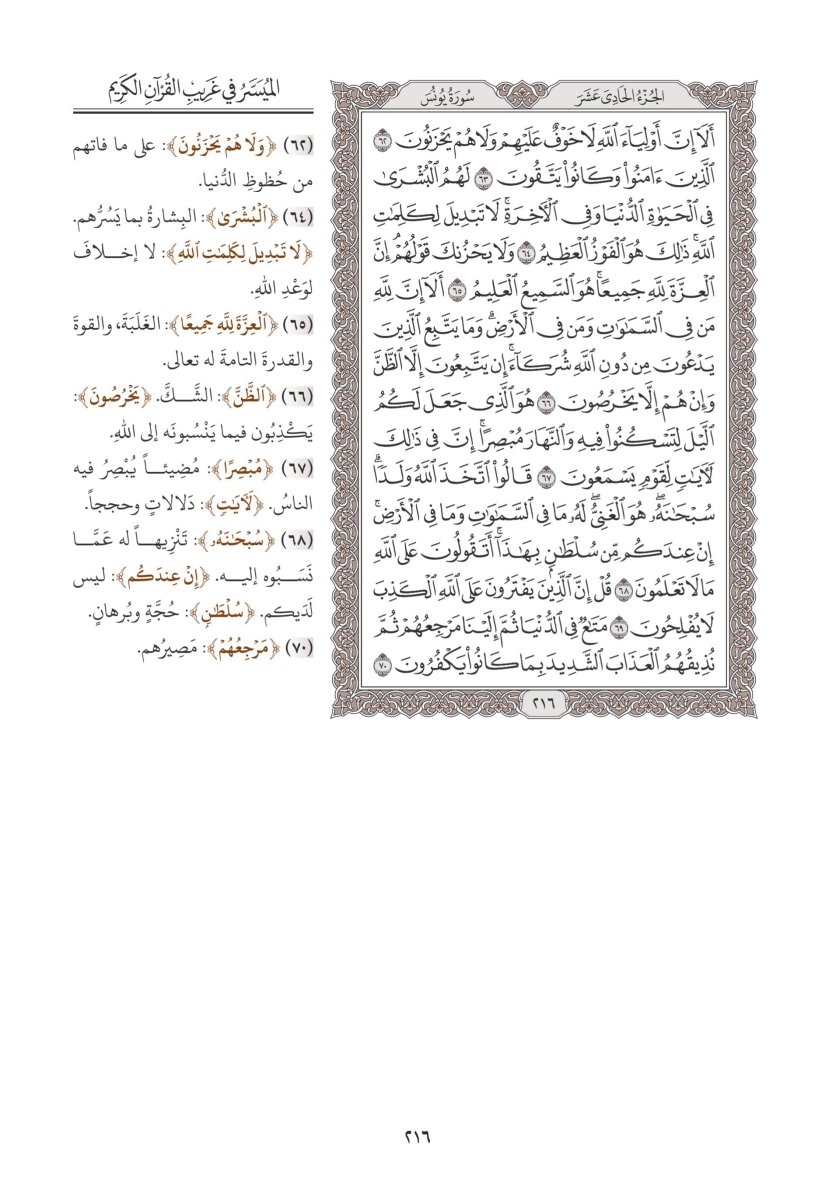 الجُزْءُ الحَادِىَ عَشَرَ
سُورَةُ يُونُسَ
أَلَآ إِنَّ أَوْلِيَآءَ ٱللَّهِ لَا خَوْفٌ عَلَيْهِمْ وَلَا هُمْ يَحْزَنُونَ ٦٢
ٱلَّذِينَ ءَامَنُواْ وَكَانُواْ يَتَّقُونَ ٦٣ لَهُمُ ٱلْبُشْرَىٰ
فِى ٱلْحَيَوٰةِ ٱلدُّنْيَا وَفِى ٱلْءَاخِرَةِۚ لَا تَبْدِيلَ لِكَلِمَٰتِ
ٱللَّهِۚ ذَٰلِكَ هُوَ ٱلْفَوْزُ ٱلْعَظِيمُ ٦٤ وَلَا يَحْزُنكَ قَوْلُهُمْۘ إِنَّ
ٱلْعِزَّةَ لِلَّهِ جَمِيعًاۚ هُوَ ٱلسَّمِيعُ ٱلْعَلِيمُ ٦٥ أَلَآ إِنَّ لِلَّهِ
مَن فِى ٱلسَّمَٰوَٰتِ وَمَن فِى ٱلْأَرْضِۗ وَمَا يَتَّبِعُ ٱلَّذِينَ
يَدْعُونَ مِن دُونِ ٱللَّهِ شُرَكَآءَۚ إِن يَتَّبِعُونَ إِلَّا ٱلظَّنَّ
وَإِنْ هُمْ إِلَّا يَخْرُصُونَ ٦٦ هُوَ ٱلَّذِى جَعَلَ لَكُمُ
ٱلَّيْلَ لِتَسْكُنُواْ فِيهِ وَٱلنَّهَارَ مُبْصِرًاۚ إِنَّ فِى ذَٰلِكَ
لَءَايَٰتٍ لِّقَوْمٍ يَسْمَعُونَ ٦٧ قَالُواْ ٱتَّخَذَ ٱللَّهُ وَلَدًاۗ
سُبْحَٰنَهُۥۖ هُوَ ٱلْغَنِىُّۖ لَهُۥ مَا فِى ٱلسَّمَٰوَٰتِ وَمَا فِى ٱلْأَرْضِۚ
إِنْ عِندَكُم مِّن سُلْطَٰنٍۭ بِهَٰذَآۚ أَتَقُولُونَ عَلَى ٱللَّهِ
مَا لَا تَعْلَمُونَ ٦٨ قُلْ إِنَّ ٱلَّذِينَ يَفْتَرُونَ عَلَى ٱللَّهِ ٱلْكَذِبَ
لَا يُفْلِحُونَ ٦٩ مَتَٰعٌ فِى ٱلدُّنْيَا ثُمَّ إِلَيْنَا مَرْجِعُهُمْ ثُمَّ
نُذِيقُهُمُ ٱلْعَذَابَ ٱلشَّدِيدَ بِمَا كَانُواْ يَكْفُرُونَ ٧٠
٢١٦
المُيَسَّرُ في غَرِيبِ القُرْآنِ الكَرِيم
(٦٢) ﴿وَلَا هُمْ يَحْزَنُونَ﴾: على ما فاتهم
من حُظوظِ الدُّنيا.
(٦٤) ﴿ٱلْبُشْرَىٰ﴾: البِشارةُ بما يَسُرُّهم.
﴿لَا تَبْدِيلَ لِكَلِمَٰتِ ٱللَّهِ﴾: لا إخلافَ
لوَعْدِ اللهِ.
(٦٥) ﴿ٱلْعِزَّةَ لِلَّهِ جَمِيعًا﴾: الغَلَبَةَ، والقوةَ
والقدرةَ التامةَ له تعالى.
(٦٦) ﴿ٱلظَّنَّ﴾: الشَّكَّ. ﴿يَخْرُصُونَ﴾:
يَكْذِبُون فيما يَنْسُبونَه إلى اللهِ.
(٦٧) ﴿مُبْصِرًا﴾: مُضِيئاً يُبْصِرُ فيه
الناسُ. ﴿لَءَايَٰتٍ﴾: دَلالاتٍ وحججاً.
(٦٨) ﴿سُبْحَٰنَهُۥ﴾: تَنْزِيهاً له عَمَّا
نَسَبُوه إليه. ﴿إِنْ عِندَكُم﴾: ليس
لَدَيكم. ﴿سُلْطَٰنٍۭ﴾: حُجَّةٍ وبُرهانٍ.
(٧٠) ﴿مَرْجِعُهُمْ﴾: مَصِيرُهم.
٢١٦